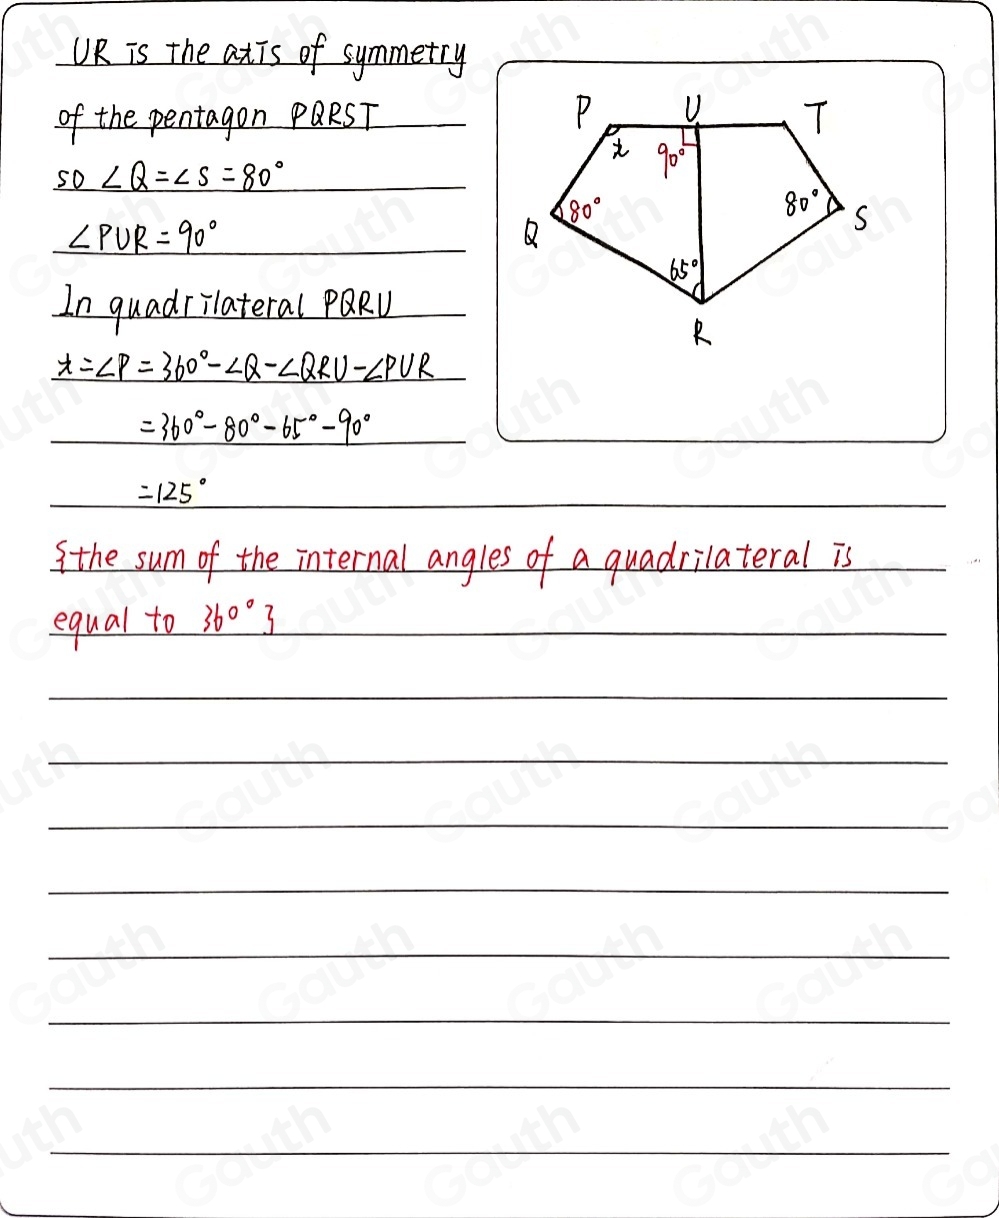 UR is the axis of symmetry
of the pentagon PQRST
so ∠Q=∠S=80°
∠PUR=90°
In quadrilateral PQRU
x=∠P=360°-∠Q-∠QRU-∠PUR
=360°-80°-65°-90°
=125°
{the sum of the internal angles of a quadrilateral is
equal to 360°}
P U T
x 90°
80° 80°
Q S
65°
R
Gauth